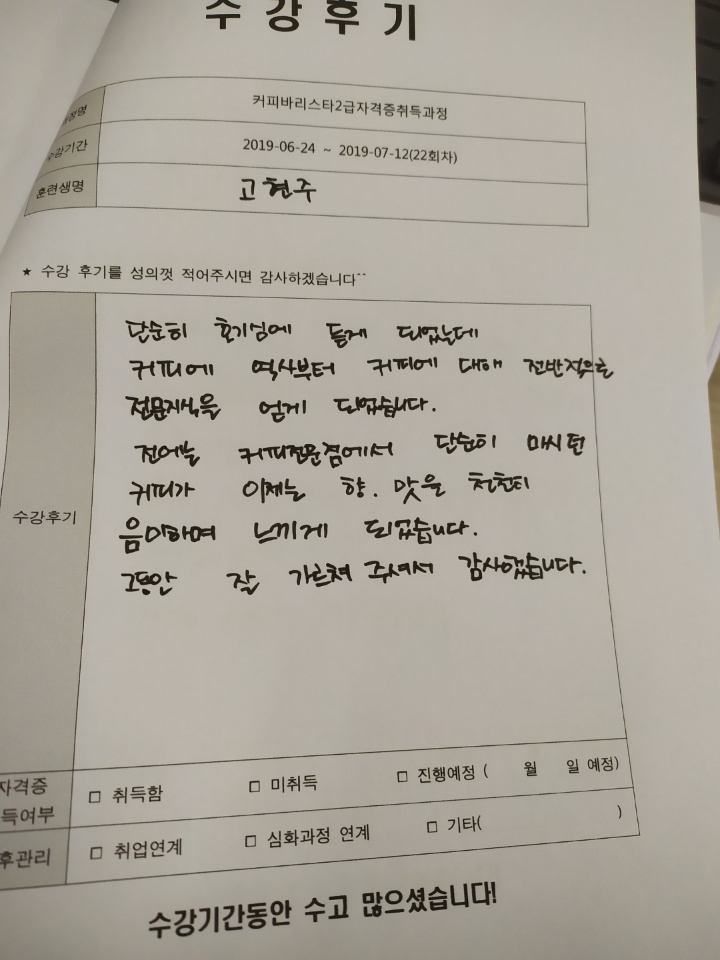 수강후기
과정명 커피바리스타2급자격증취득과정
수강기간 2019-06-24 ~ 2019-07-12(22회차)
훈련생명 고현주
★ 수강 후기를 성의껏 적어주시면 감사하겠습니다^^
수강후기
단순히 호기심에 듣게 되었는데
커피에 역사부터 커피에 대해 전반적으로
전문지식을 얻게 되었습니다.
전에는 커피전문점에서 단순히 마시던
커피가 이제는 향. 맛을 천천히
음미하며 느끼게 되었습니다.
그동안 잘 가르쳐 주셔서 감사했습니다.
자격증
득여부 □ 취득함 □ 미취득 □ 진행예정 ( 월 일 예정)
후관리 □ 취업연계 □ 심화과정 연계 □ 기타( )
수강기간동안 수고 많으셨습니다!